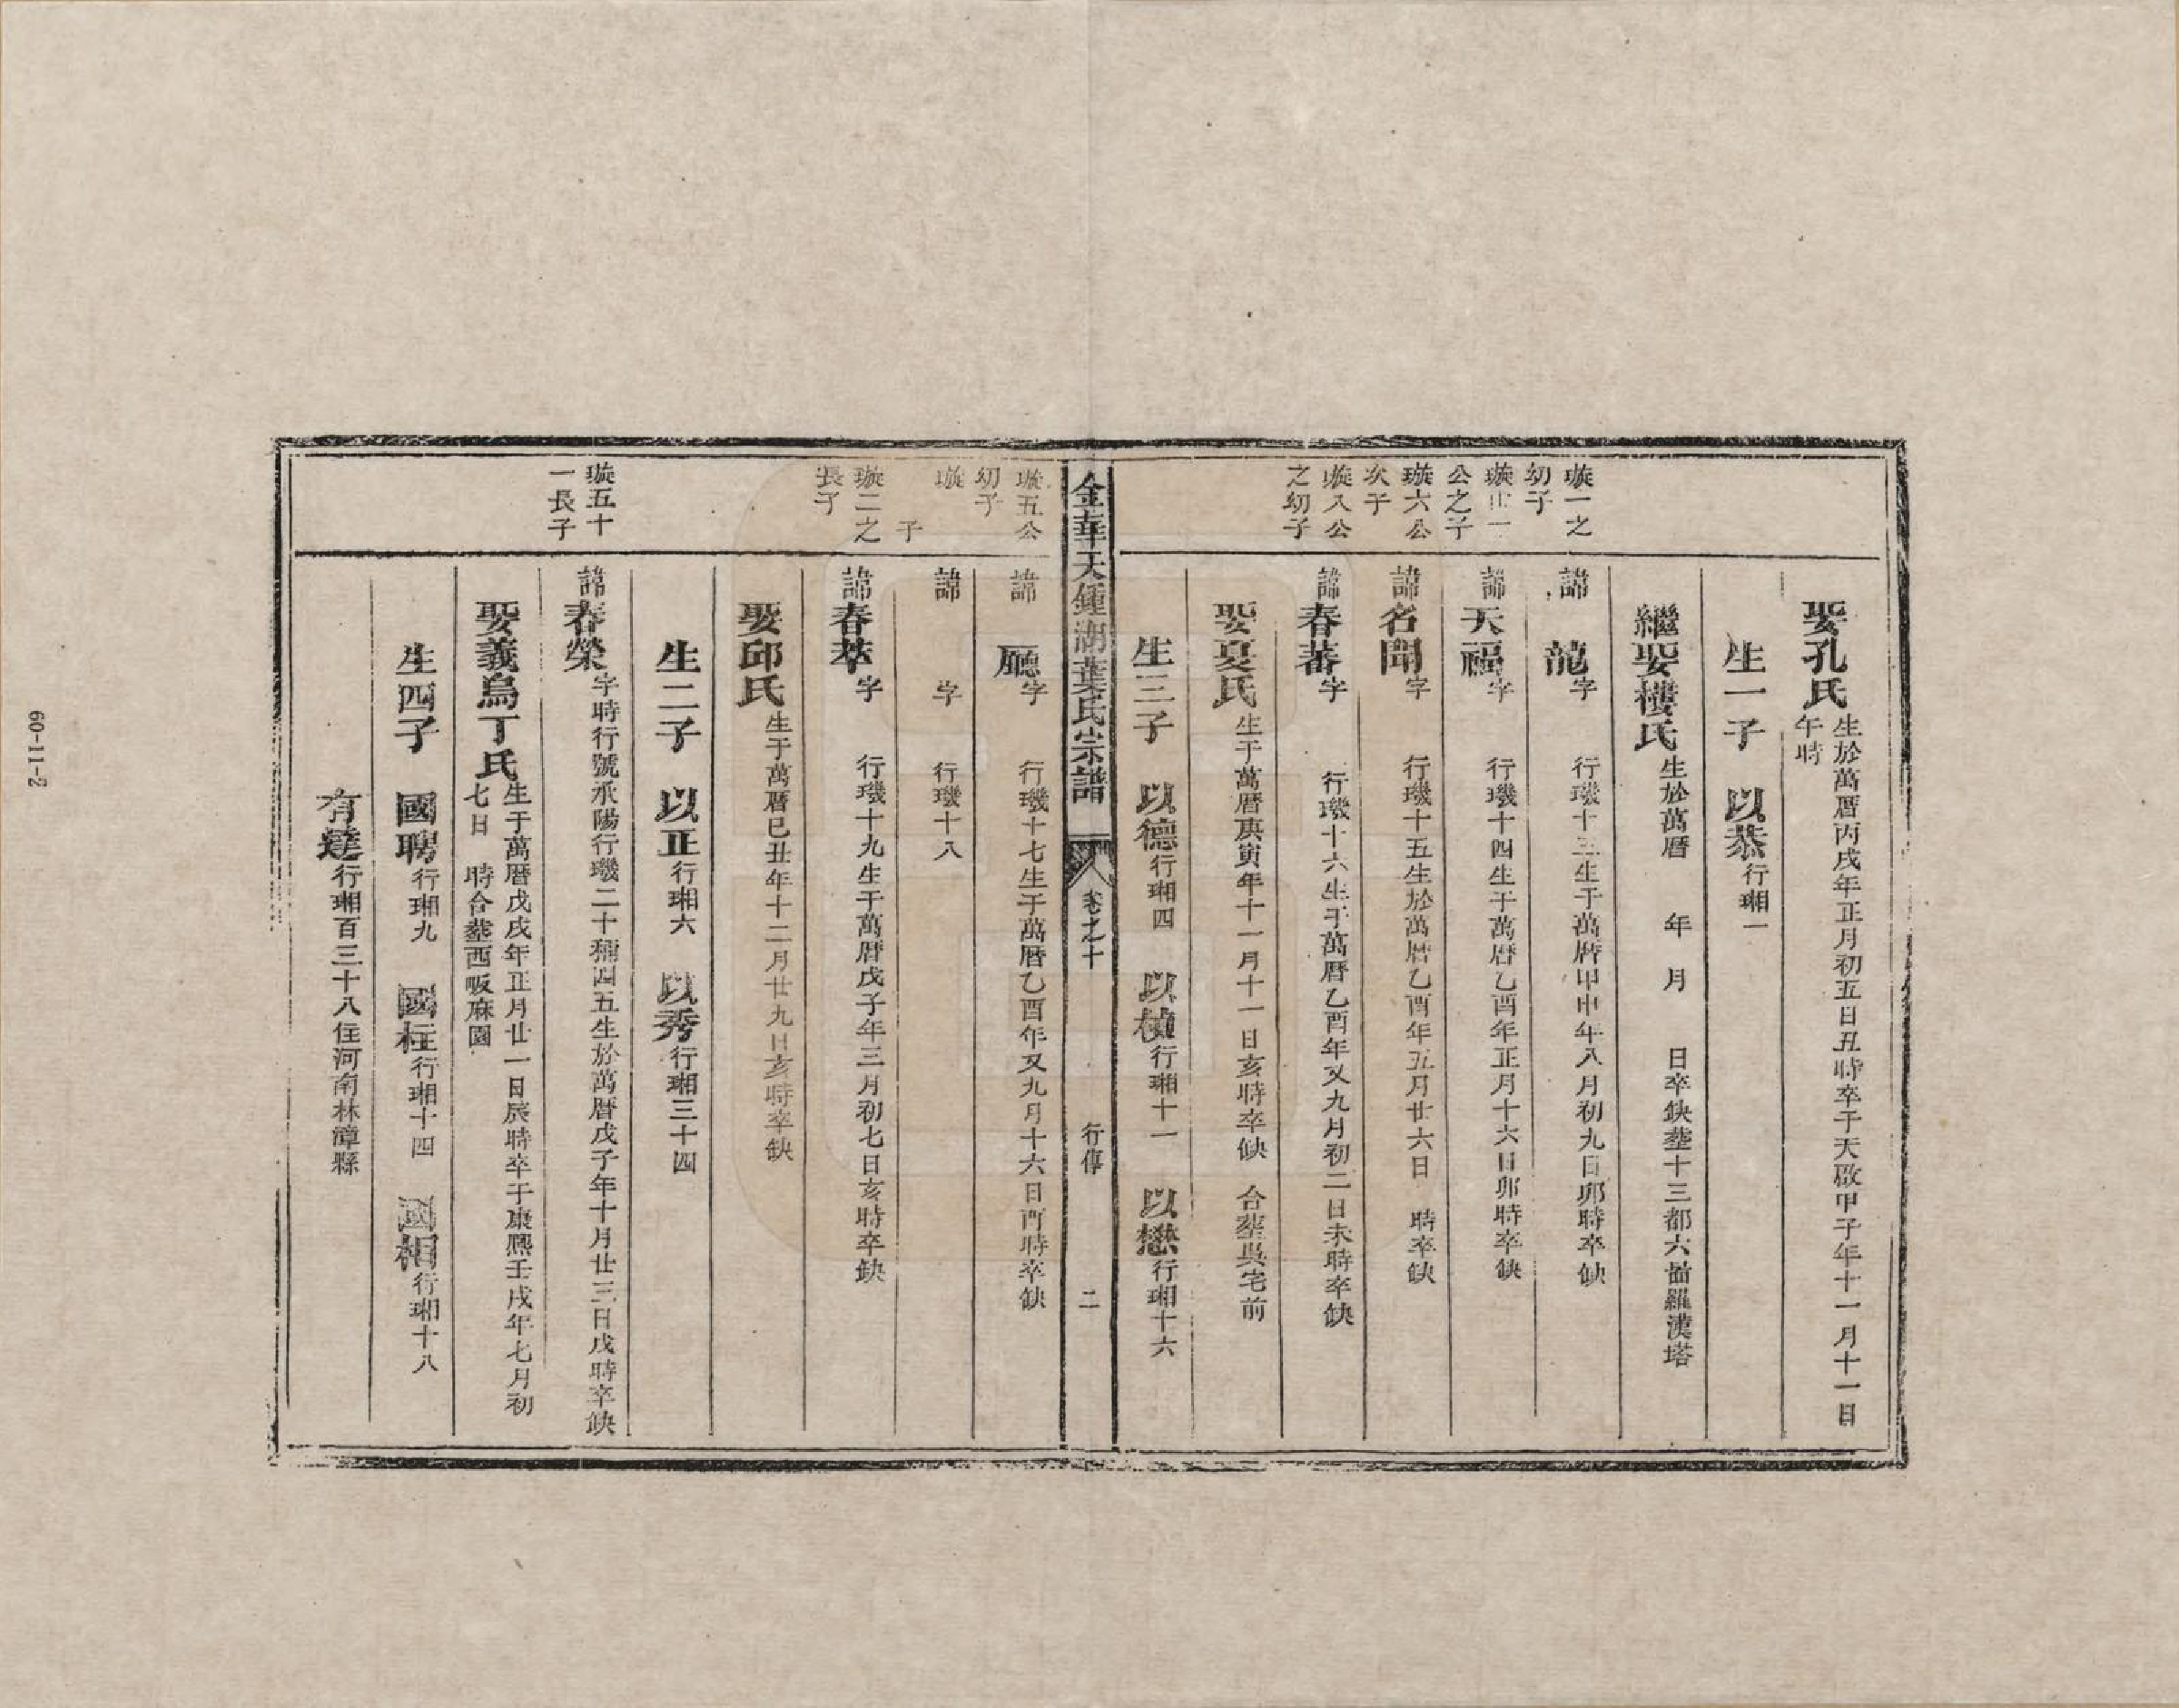 娶孔氏生於萬曆丙戌年正月初五日丑時卒于天啟甲子年十一月十一日午時
生一子 以恭行瑚一
繼娶樓氏生於萬曆 年 月 日卒缺塟十三都六啚羅漢塔
璇一之幼子
諱 龍字 行璣十三生于萬曆甲申年八月初九日卯時卒缺
公之子
諱天福字 行璣十四生于萬曆乙酉年正月十六日卯時卒缺
璇六公次子
諱名聞字 行璣十五生於萬曆乙酉年五月廿六日 時卒缺
璇八公之幼子
諱春蕃字 行璣十六生于萬曆乙酉年又九月初二日未時卒缺
娶夏氏生于萬曆庚寅年十一月十一日亥時卒缺 合塟吳宅前
生三子 以德行瑚四 以楨行瑚十一 以懋行瑚十六
金華天鍾湖葉氏宗譜 卷之十 行傳 二
璇五公幼子
諱 廳字 行璣十七生于萬曆乙酉年又九月十六日酉時卒缺
璇 子
諱 字 行璣十八
璇二之長子
諱春萃字 行璣十九生于萬曆戊子年三月初七日亥時卒缺
娶邱氏生于萬曆己丑年十二月廿九日亥時卒缺
生二子 以正行瑚六 以秀行瑚三十四
璇五十一長子
諱春榮字時行號承陽行璣二十 四五生於萬曆戊子年十月廿三日戌時卒缺
娶義烏丁氏生于萬曆戊戌年正月廿一日辰時卒于康熙壬戌年七月初七日 時合塟西畈麻園
生四子 國聘行瑚九 國柱行瑚十四 國相行瑚十八
有達行瑚百三十八住河南林漳縣
60-11-2